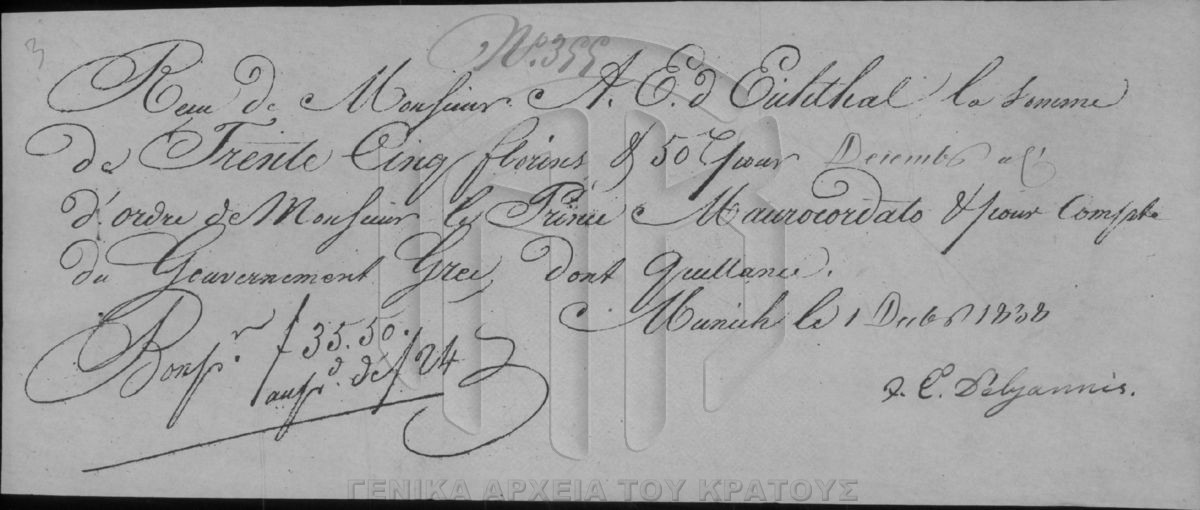 3
No. 355
Recu de Monsieur A. E. d'Eichthal la somme
de Trente Cinq florins & 50 C pour Decemb
d'ordre de Monsieur le Prince Maurocordato & pour Compte
du Gouvernement Grec, dont quittance.
Munich le 1 Decbr 1838
Bon pr f 35.50.
au pd. de f 24
E. Delyannis.
ΓΕΝΙΚΑ ΑΡΧΕΙΑ ΤΟΥ ΚΡΑΤΟΥΣ